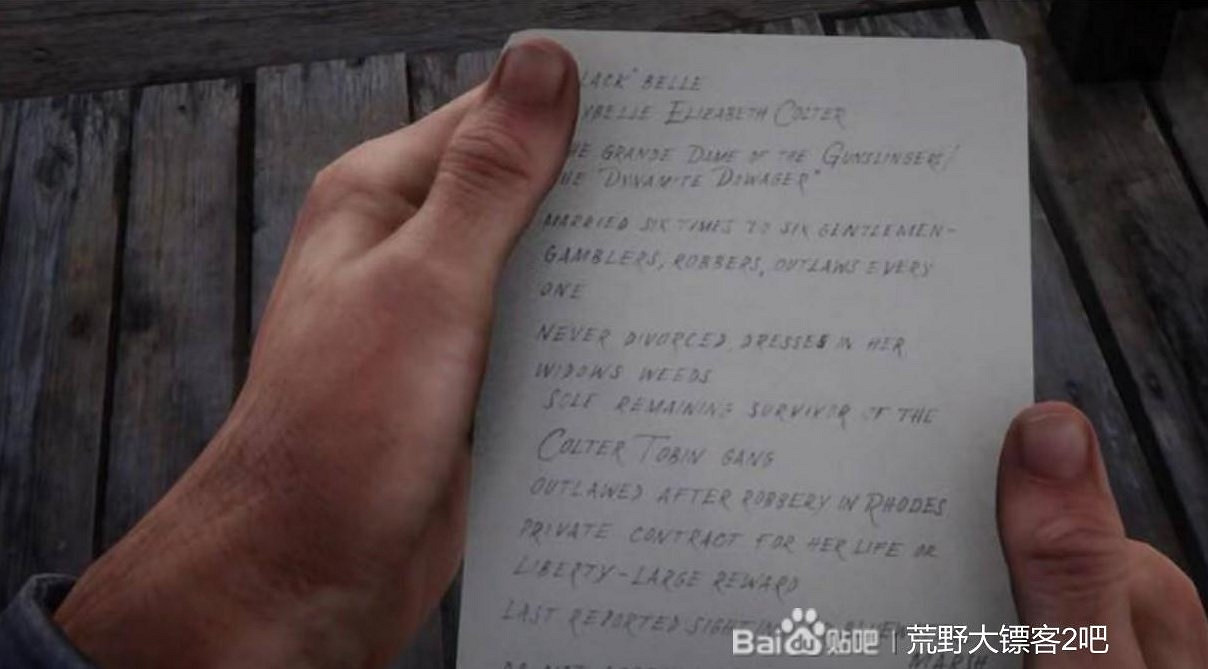 LACK" BELLE
YBELLE ELIZABETH COLTER
HE GRANDE DAME OF THE GUNSLINGERS/
HE "DYNAMITE DOWAGER"
MARRIED SIX TIMES TO SIX GENTLEMEN-
GAMBLERS, ROBBERS, OUTLAWS EVERY
ONE
NEVER DIVORCED. DRESSES IN HER
WIDOWS WEEDS
SOLE REMAINING SURVIVOR OF THE
COLTER TOBIN GANG
OUTLAWED AFTER ROBBERY IN RHODES.
PRIVATE CONTRACT FOR HER LIFE OR
LIBERTY-LARGE REWARD
LAST REPORTED SIGHTING
MARSH
Bai du 贴吧 | 荒野大镖客2吧